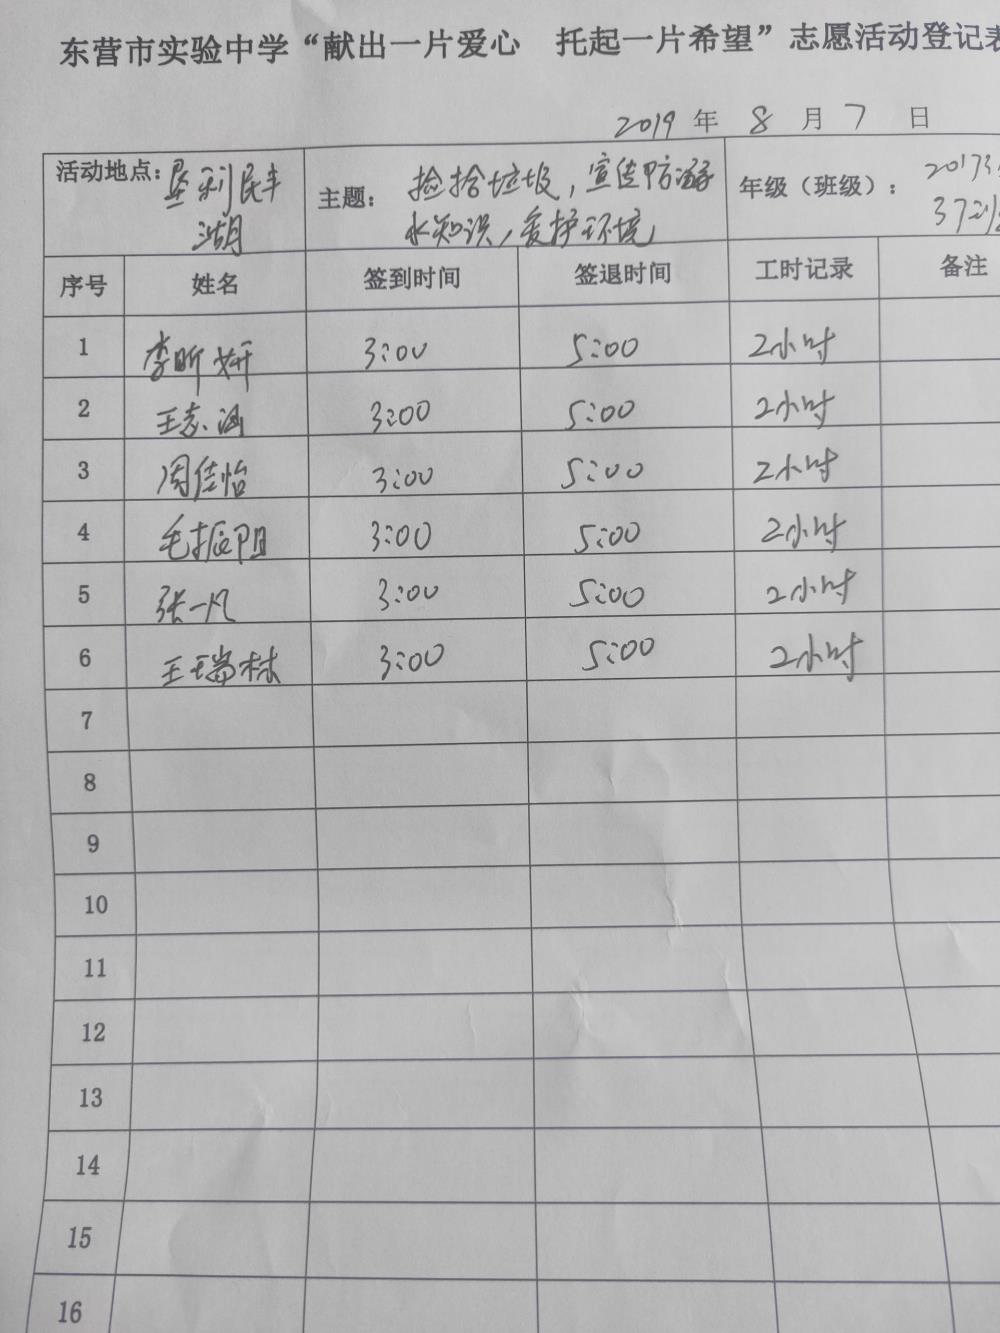 东营市实验中学“献出一片爱心 托起一片希望”志愿活动登记表
2019 年 8 月 7 日
活动地点：垦利民丰湖
主题：捡拾垃圾，宣传防溺水知识，爱护环境
年级（班级）：2017 37
序号 姓名 签到时间 签退时间 工时记录 备注
1 李昕妍 3:00 5:00 2小时
2 王志涵 3:00 5:00 2小时
3 周佳怡 3:00 5:00 2小时
4 毛振阳 3:00 5:00 2小时
5 张一凡 3:00 5:00 2小时
6 王瑞林 3:00 5:00 2小时
7
8
9
10
11
12
13
14
15
16